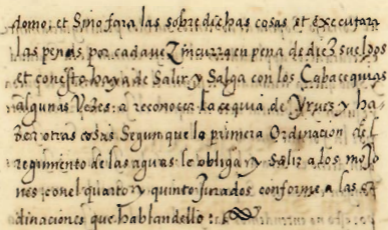 domo, et Sino fara las sobredichas cosas et executara
las penas por cadauez incurra en pena de diez sueldos
et con esto haya de Salir y Salga con los Cabacequias
algunas Vezes: a reconocer la cequia de Yruez y ha-
zer otras cosas Segun que la primera Ordinacion del
regimiento de las aguas le obliga y Salir a los mojo
nes con el quarto y quinto Jurados conforme a las or
dinaciones que hablan dello: